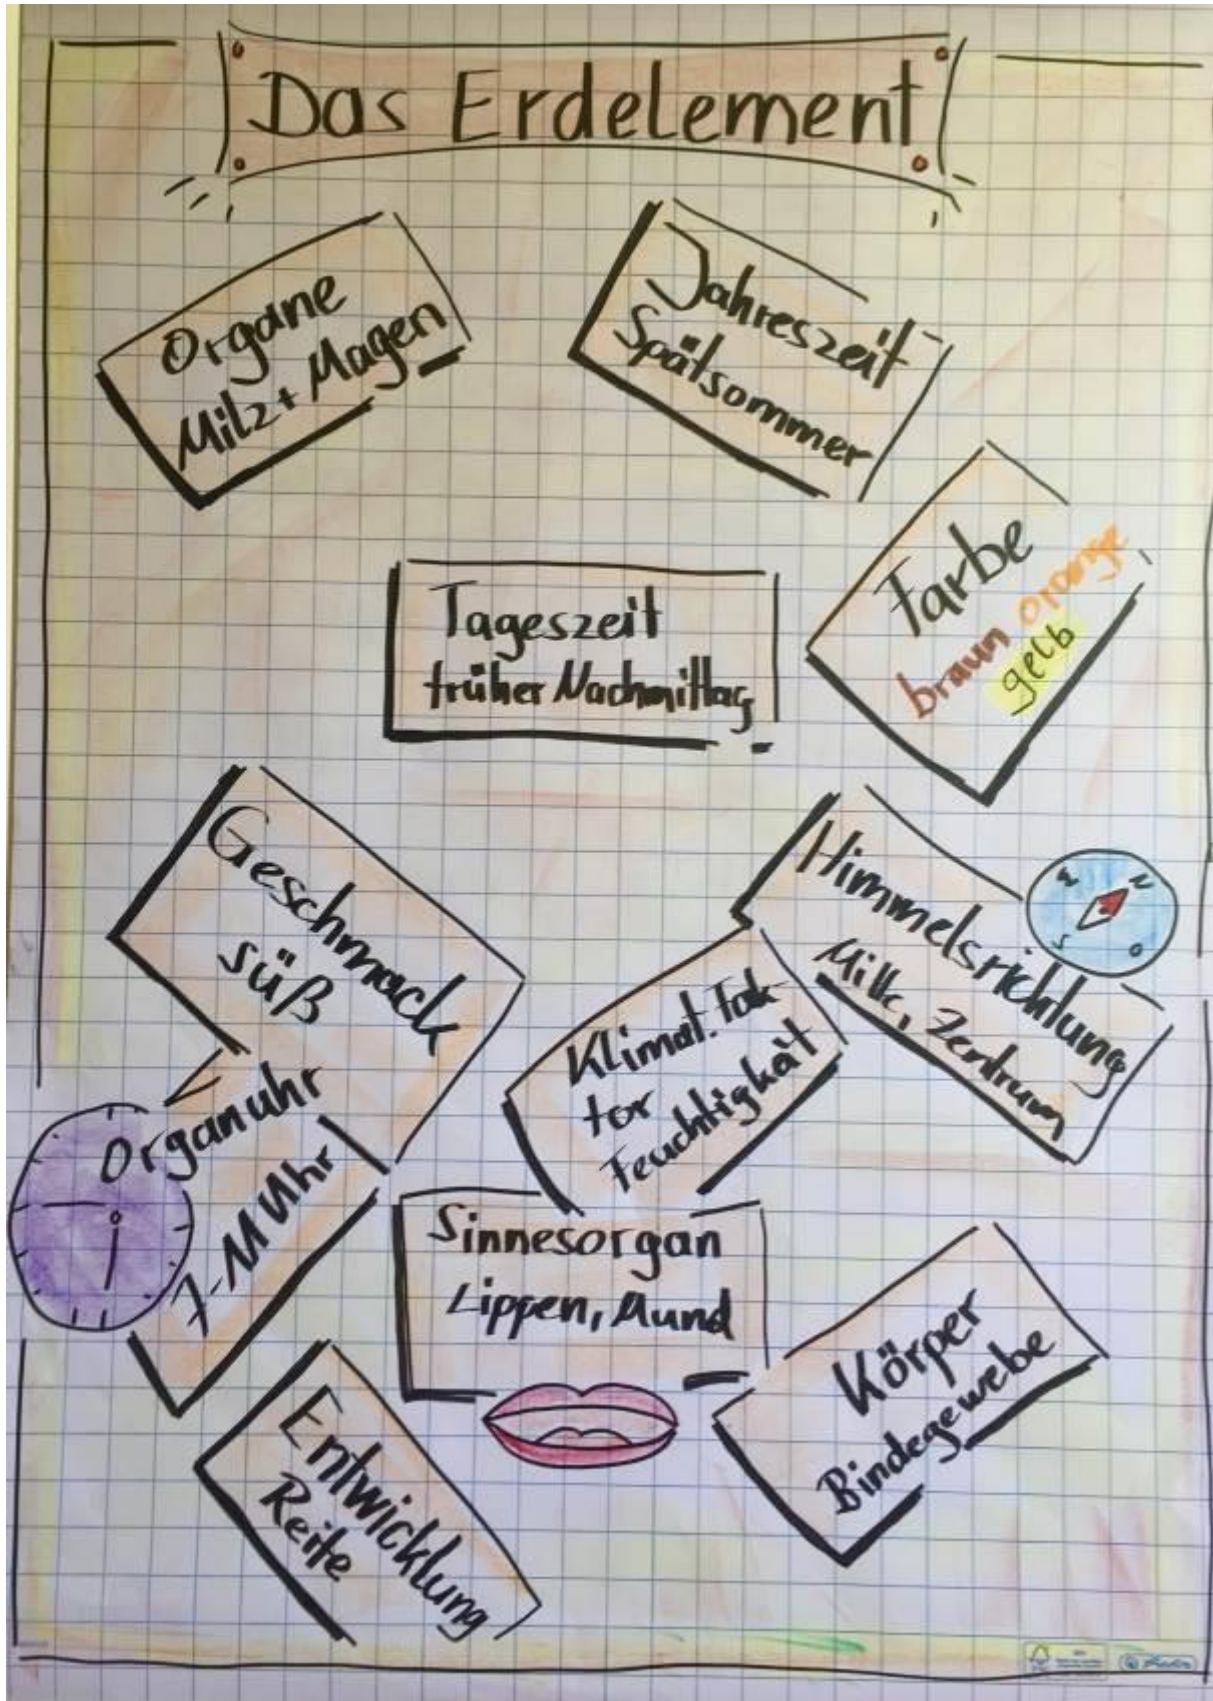 Das Erdelement
Organe
Milz + Magen
Jahreszeit
Spätsommer
Farbe
braun orange
gelb
Tageszeit
früher Nachmittag
Geschmack
süß
Himmelsrichtung
Mitte, Zentrum
N
O
S
W
Klimat. Fak-
tor
Feuchtigkeit
Organuhr
7-11 Uhr
Sinnesorgan
Lippen, Mund
Körper
Bindegewebe
Entwicklung
Reife